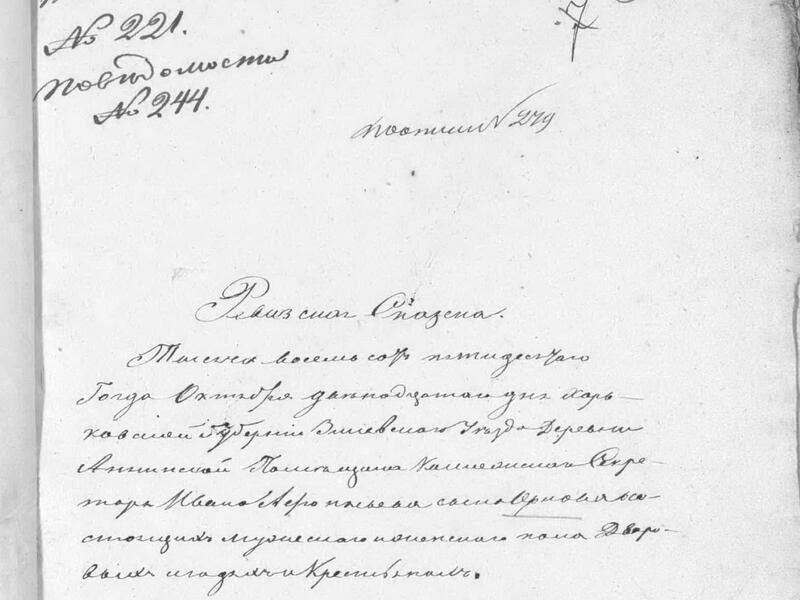 № 221.
по вѣдомости
№ 244.
№ 279
Ревизская Сказка.
Тысяча восемь сотъ пятидесятаго
Года Октября двенадцатаго дня Харь-
ковской Губерніи Зміевскаго Уѣзда Деревни
Аннинской Помѣщика Коллежскаго Секре-
таря Ивана сына со-
стоящихъ мужескаго и женскаго пола Дворо-
выхъ людяхъ и Крестьянахъ.